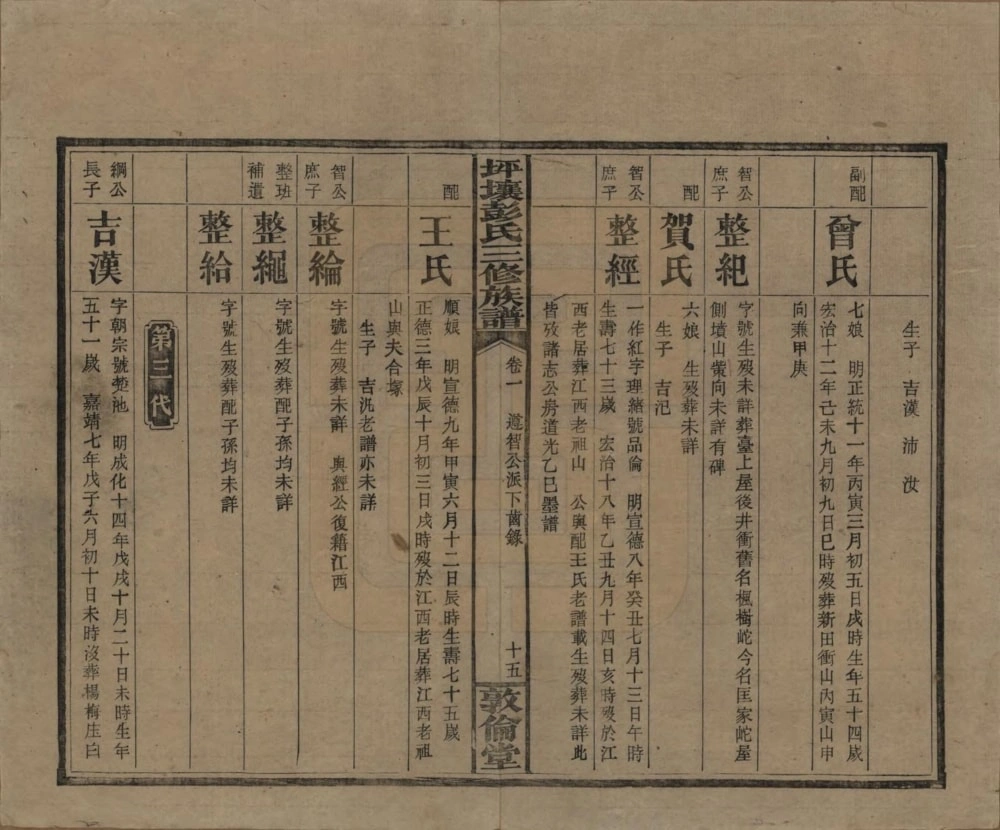 生子　吉漢　沛　汝
副配
曾氏
七娘　明正統十一年丙寅三月初五日戌時生年五十四歲
宏治十二年己未九月初九日巳時歿葬新田衝山丙寅山申
向兼甲庚
智公
庶子
整紀
字號生歿未詳葬臺上屋後井衝舊名楓樹㟏今名匡家㟏屋
側墳山䘨向未詳有碑
配
賀氏
六娘　生歿葬未詳
生子　吉汜
智公
庶子
整經
一作紅字理緒號品倫　明宣德八年癸丑七月十三日午時
生壽七十三歲　宏治十八年乙丑九月十四日亥時歿於江
西老居葬江西老祖山　公與配王氏老譜載生歿葬未詳此
皆攷諸志公房道光乙巳墨譜
坪壤彭氏三修族譜
卷一　遵智公派下齒錄
十五
敦倫堂
配
王氏
順娘　明宣德九年甲寅六月十二日辰時生壽七十五歲
正德三年戊辰十月初三日戌時歿於江西老居葬江西老祖
山與夫合塚
生子　吉洗老譜亦未詳
智公
庶子
整綸
字號生歿葬未詳　與經公復籍江西
整班
補遺
整繩
字號生歿葬配子孫均未詳
整給
字號生歿葬配子孫均未詳
第三代
綱公
長子
吉漢
字朝宗號㷼池　明成化十四年戊戌十月二十日未時生年
五十一歲　嘉靖七年戊子六月初十日未時沒葬楊梅庄白